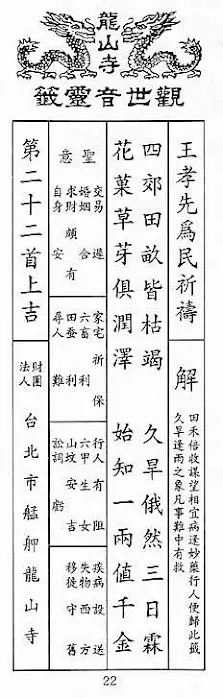 龍山寺
觀世音靈籤
王孝先爲民祈禱
解
田禾倍收謀望相宜病逢妙藥行人便歸此籤
久旱逢雨之象凡事難中有救
四郊田畝皆枯竭 久旱俄然三日霖
花菓草芽俱潤澤 始知一雨値千金
聖意
交易 遂
婚姻 合
求財 頗有
自身 安
家宅 祈保
六畜 利
田蚕 利
尋人 難
行人 有阻
六甲 生女
山坟 安吉
訟詞 虧
疾病 設送
失物 西方
移徙 守舊
第二十二首上吉
財團法人 台北市艋舺龍山寺
22